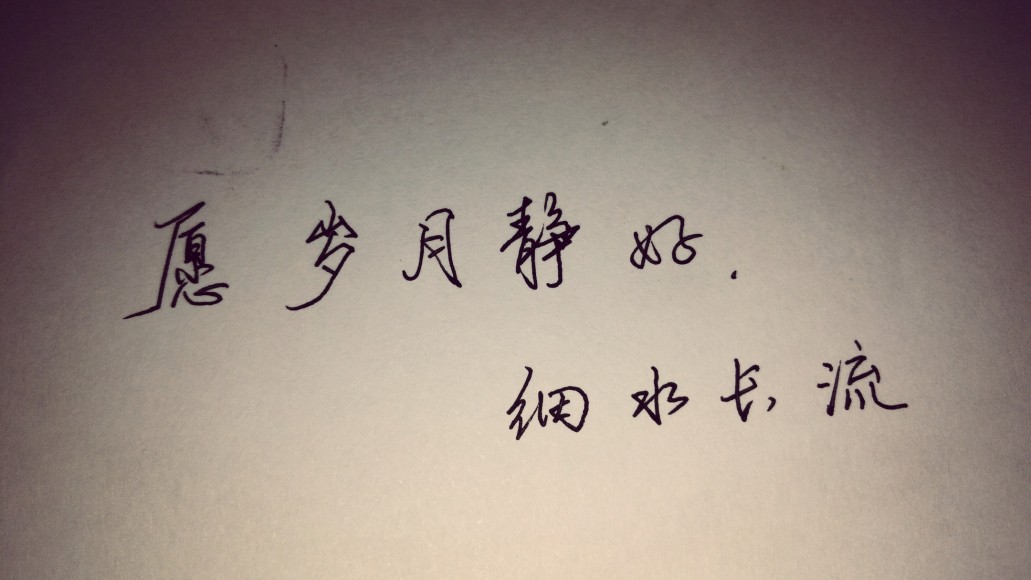 愿岁月静好.
细水长流